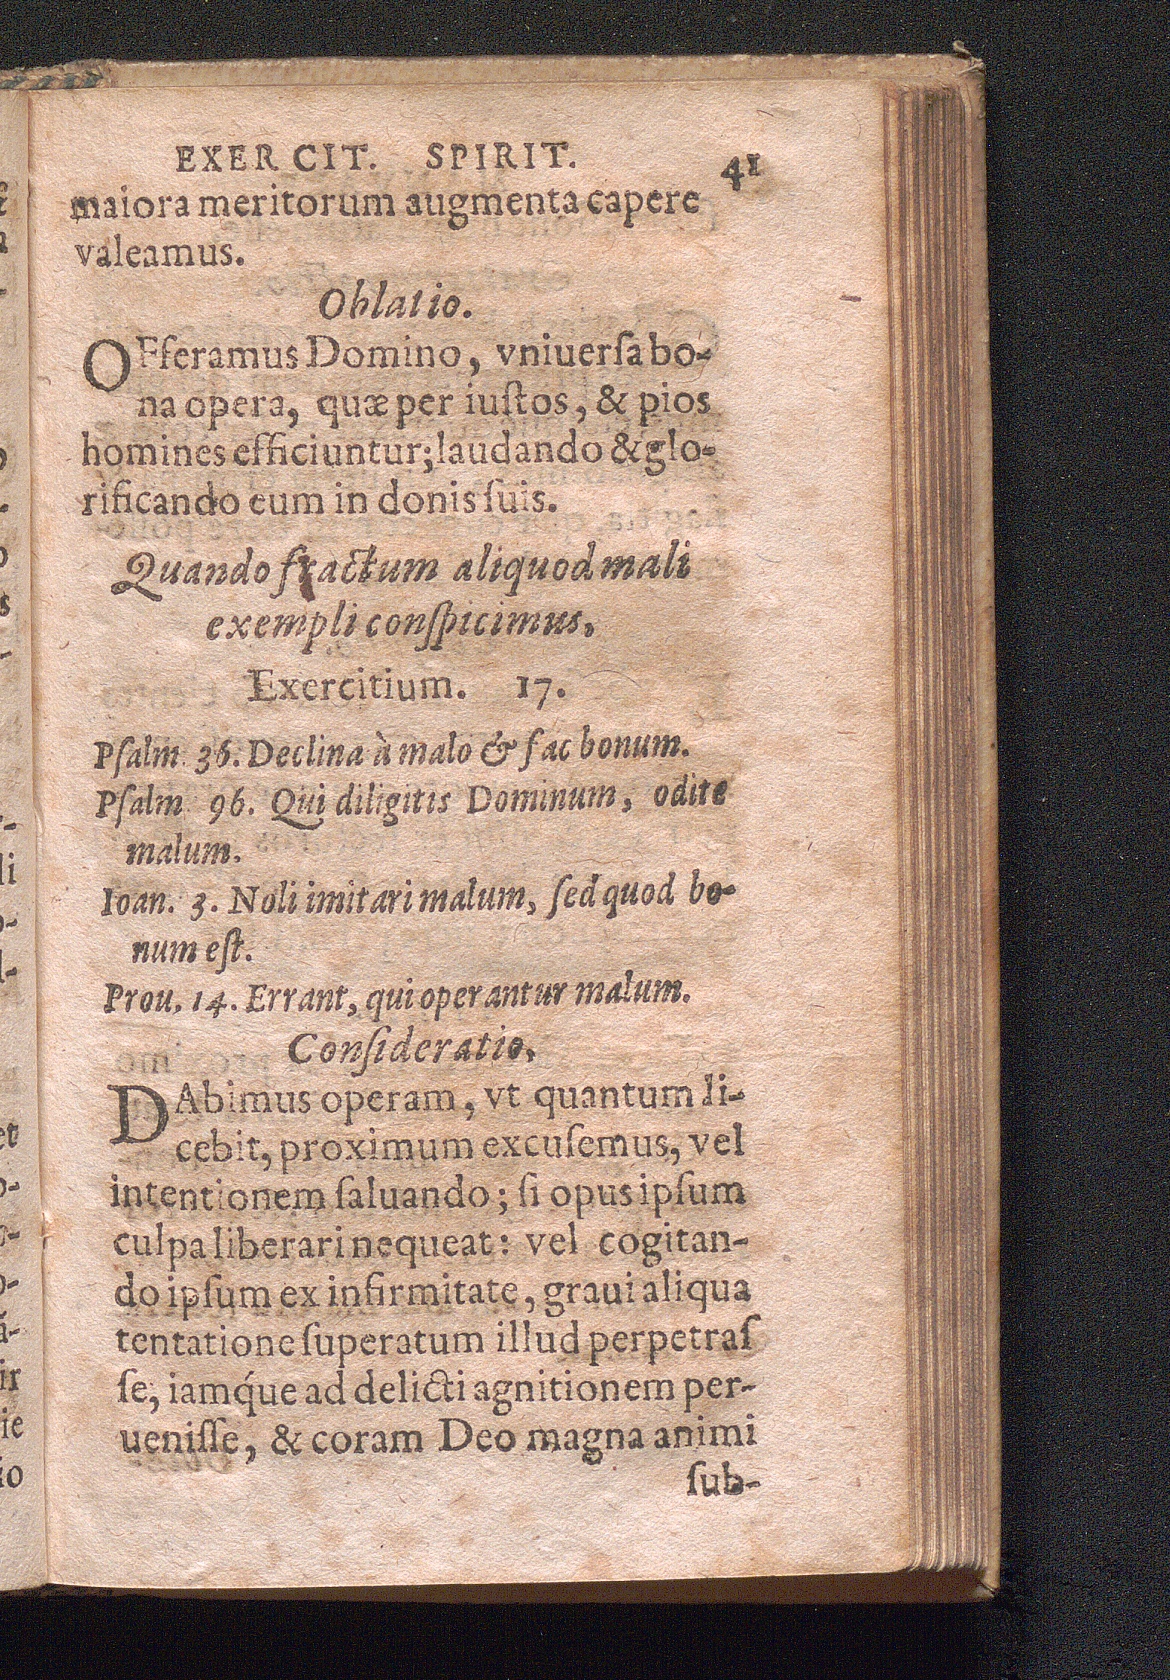 EXERCIT. SPIRIT. 41
maiora meritorum augmenta capere
valeamus.
Oblatio.
OFferamus Domino, vniuerſa bo-
na opera, quæ per iuſtos, & pios
homines efficiuntur; laudando & glo-
rificando eum in donis ſuis.
Quando fractum aliquod mali
exempli conſpicimus,
Exercitium. 17.
Pſalm. 36. Declina à malo & fac bonum.
Pſalm 96. Qui diligitis Dominum, odite
malum.
Ioan. 3. Noli imitari malum, ſed quod bo-
num eſt.
Prou. 14. Errant, qui operantur malum.
Conſideratio,
DAbimus operam, vt quantum li-
cebit, proximum excuſemus, vel
intentionem ſaluando; ſi opus ipſum
culpa liberari nequeat: vel cogitan-
do ipſum ex infirmitate, graui aliqua
tentatione ſuperatum illud perpetraſ
ſe, iamq́ue ad delicti agnitionem per-
ueniſſe, & coram Deo magna animi
ſub-